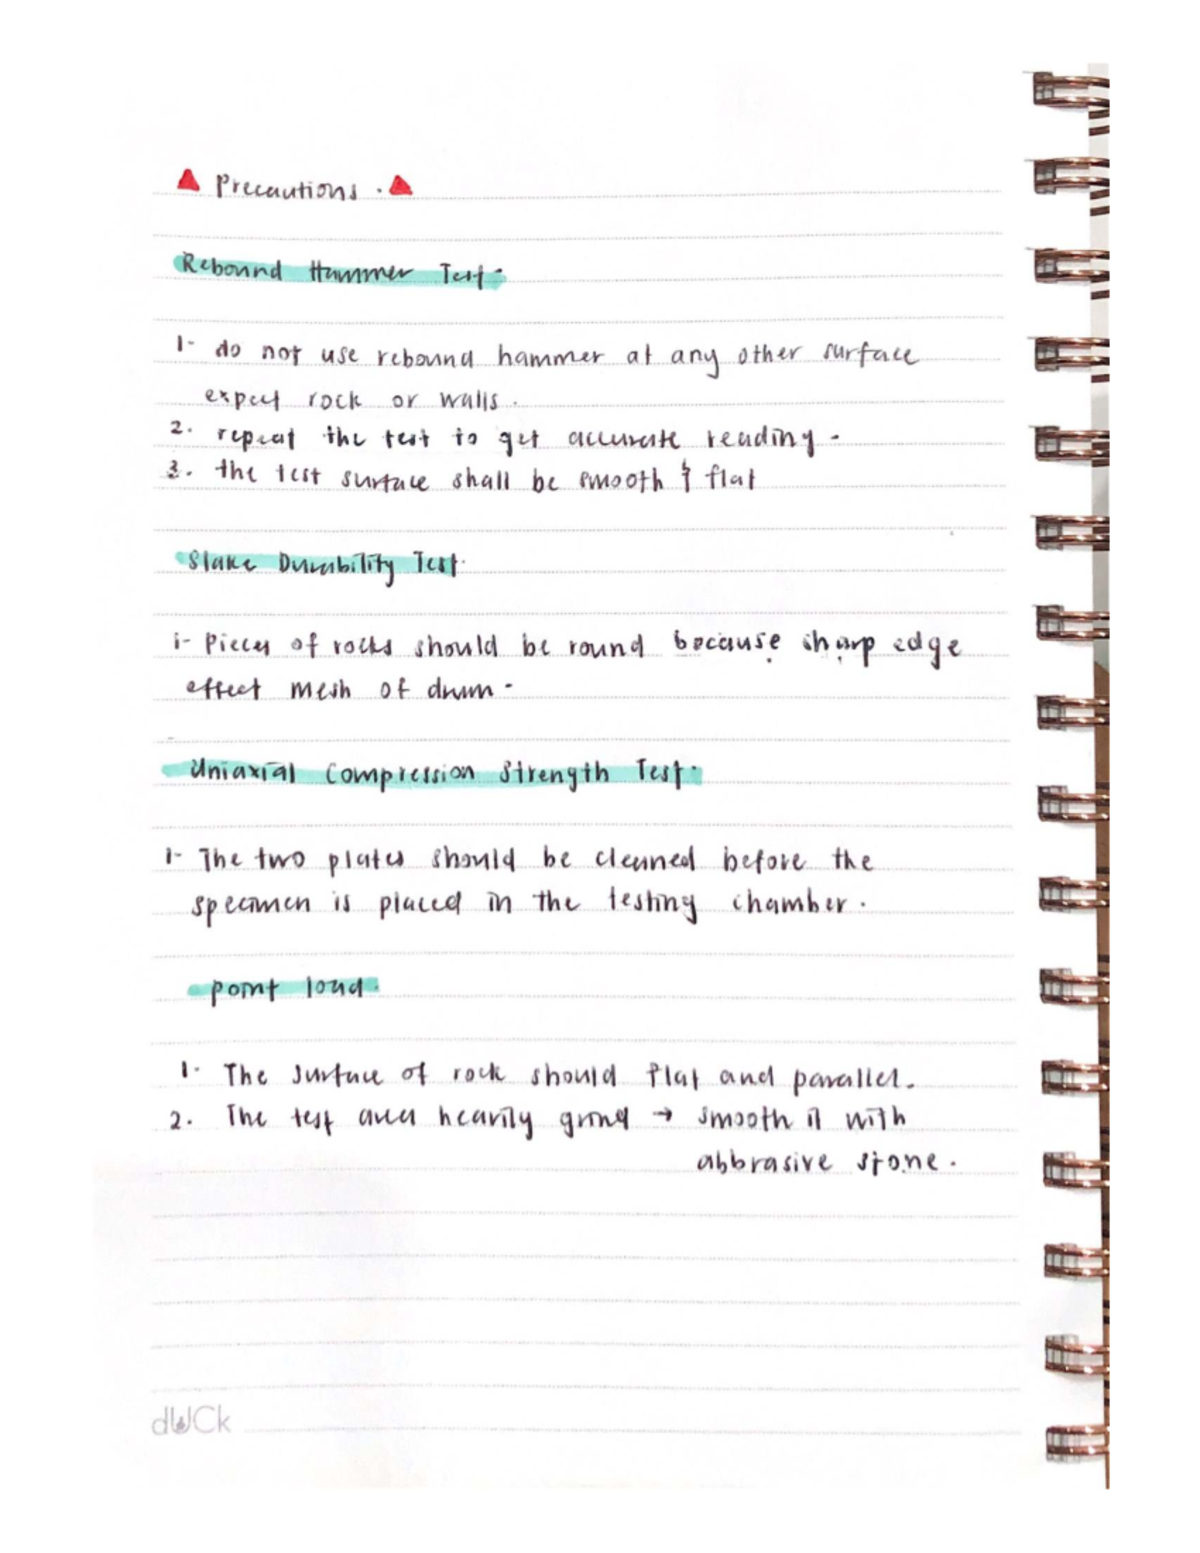 Precautions.
Rebound Hammer Test.
1- do not use rebound hammer at any other surface
expect rock or walls.
2. repeat the test to get accurate reading.
3. the test surface shall be smooth & flat
Slake Durability Test.
1- Pieces of rocks should be round because sharp edge
effect mesh of drum.
Uniaxial Compression Strength Test.
1- The two plates should be cleaned before the
specimen is placed in the testing chamber.
point load.
1. The surface of rock should flat and parallel.
2. The test area heavily grind → smooth it with
abbrasive stone.
dUCk